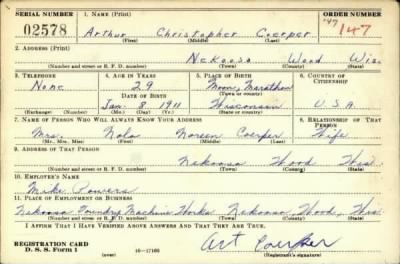 SERIAL NUMBER 1. NAME (Print) ORDER NUMBER
02578 Arthur Christopher Coerper 147
(First) (Middle) (Last)
2. ADDRESS (Print)
Nekoosa Wood Wis.
(Number and street or R. F. D. number) (Town) (County) (State)
3. TELEPHONE 4. AGE IN YEARS 5. PLACE OF BIRTH 6. COUNTRY OF CITIZENSHIP
None 29 Moon, Marathon
DATE OF BIRTH (Town or county)
Jan. 8 1911 Wisconsin U.S.A.
(Exchange) (Number) (Mo.) (Day) (Yr.) (State or country)
7. NAME OF PERSON WHO WILL ALWAYS KNOW YOUR ADDRESS 8. RELATIONSHIP OF THAT PERSON
Mrs. Nola Noreen Coerper Wife
(Mr., Mrs., Miss) (First) (Middle) (Last)
9. ADDRESS OF THAT PERSON
Nekoosa Wood Wis
(Number and street or R. F. D. number) (Town) (County) (State)
10. EMPLOYER'S NAME
Mike Powers
11. PLACE OF EMPLOYMENT OR BUSINESS
Nekoosa Foundry Machine Works Nekoosa, Wood, Wis
(Number and street or R. F. D. number) (Town) (County) (State)
I AFFIRM THAT I HAVE VERIFIED ABOVE ANSWERS AND THAT THEY ARE TRUE.
REGISTRATION CARD
D. S. S. Form 1 (over) 16-17105 Art Coerper
(Registrant's signature)